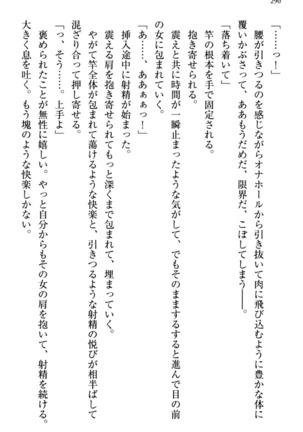 290
「……っ！」
腰が引きつるのを感じながらオナホールから引き抜いて肉に飛び込むように豊かな体に
覆いかぶさって、ああもうだめだ、限界だ、こぼしてしまう――。
「落ち着いて」
竿の根本を手で固定される。
抱き寄せられる。
震えと共に時間が一瞬止まったような気がして、でもそのままするすると進んで目の前
の女に包まれていく。
「あ……、あああぁっ！」
挿入途中に射精が始まった。
震える肩を抱き寄せられてもっと深くまで包まれて、埋まっていく。
やがて竿全体が包まれて蕩けるような快楽と、引きつるような射精の悦びが相半ばして
混ざり合って押し寄せる。
「っ、そう……。上手よ」
褒められたことが無性に嬉しい。やっと自分からもその女の肩を抱いて、射精を続ける。
大きく息を吐く。もう塊のような快楽しかない。